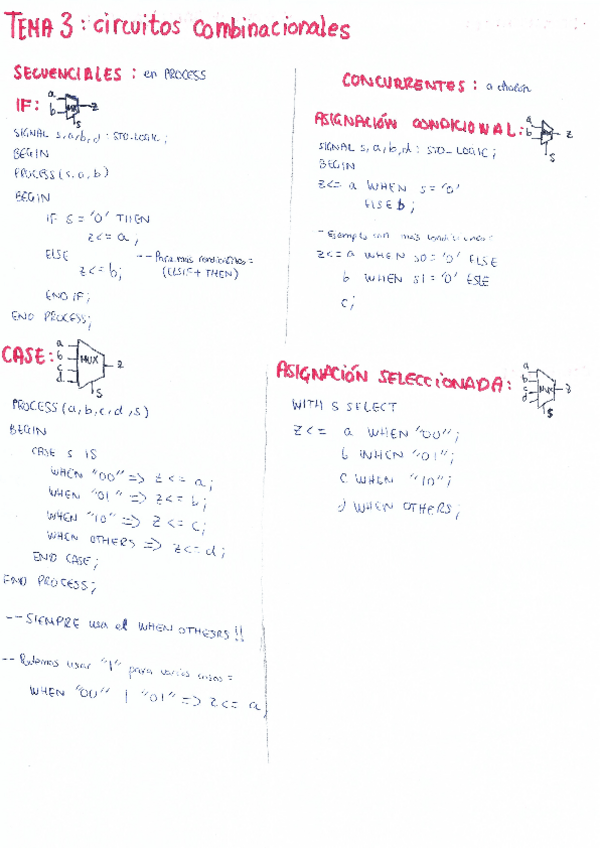 TEMA 3: circuitos combinacionales
SECUENCIALES: en PROCESS
IF:
a
b
z
s
SIGNAL s,a,b,d: STD_LOGIC;
BEGIN
PROCESS(s,a,b)
BEGIN
IF s = '0' THEN
z <= a;
ELSE
z <= b;
-- Para mas condiciones =
(ELSIF + THEN)
END IF;
END PROCESS;
CASE:
a
b
c
d
MUX
z
s
PROCESS(a,b,c,d,s)
BEGIN
CASE s IS
WHEN "00" => z <= a;
WHEN "01" => z <= b;
WHEN "10" => z <= c;
WHEN OTHERS => z <= d;
END CASE;
END PROCESS;
-- SIEMPRE usa el WHEN OTHESRS!!
-- Podemos usar "|" para varios casos =
WHEN "00" | "01" => z <= a;
CONCURRENTES: a choron
ASIGNACIÓN CONDICIONAL:
a
b
z
s
SIGNAL s,a,b,d: STD_LOGIC;
BEGIN
z <= a WHEN s = '0'
ELSE b;
- Ejemplo con más condiciones:
z <= a WHEN s0 = '0' ELSE
b WHEN s1 = '0' ESLE
c;
ASIGNACIÓN SELECCIONADA:
a
b
c
d
MUX
z
s
WITH S SELECT
z <= a WHEN "00";
b WHEN "01";
c WHEN "10";
d WHEN OTHERS;